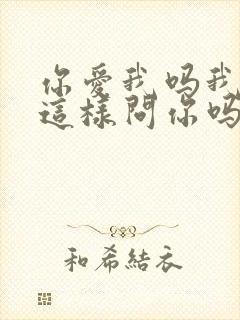 你愛我嗎我
這樣問你嗎
和希結衣